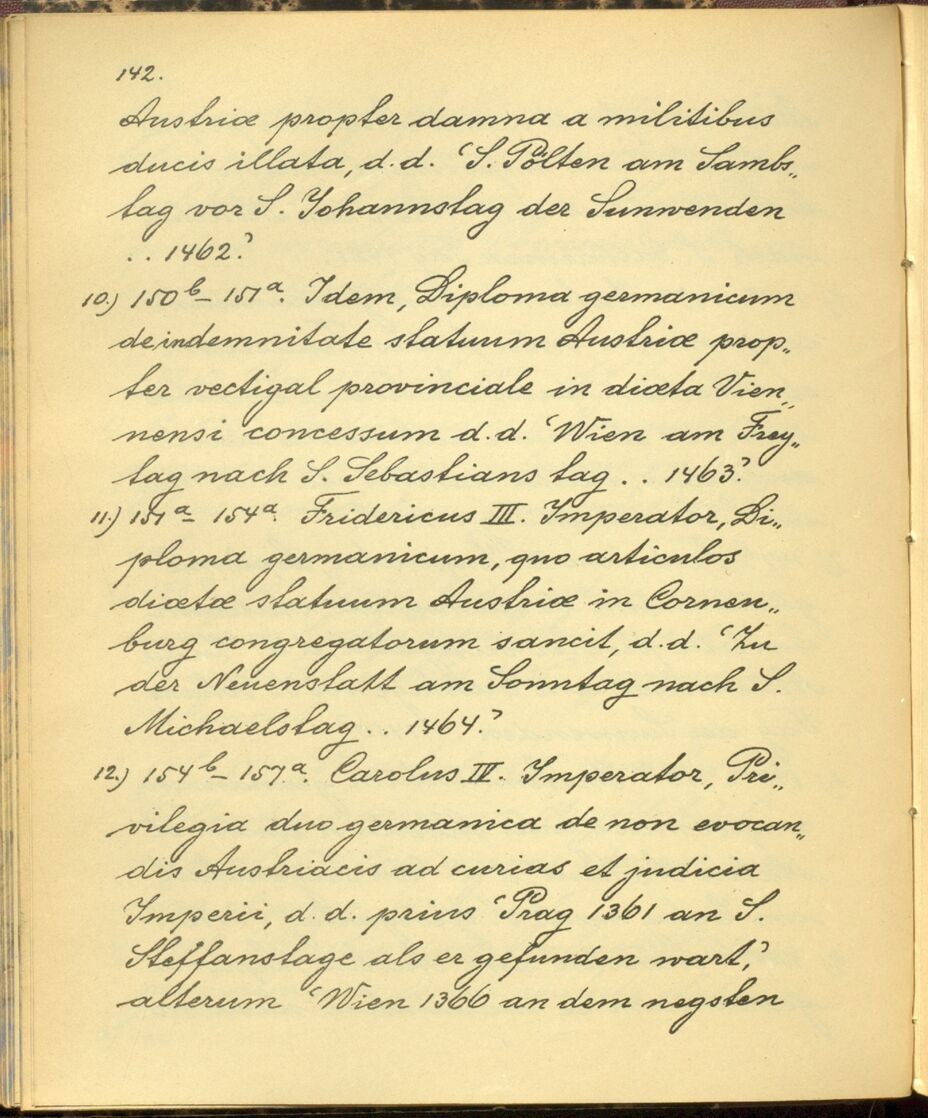 142.
Austriæ propter damna a militibus
ducis illata, d. d. ‘S. Pölten am Sambs„
tag vor S. Johannstag der Sunwenden
. . 1462.’
10.) 150 b – 151 a. Idem, Diploma germanicum
de indemnitate statuum Austriæ prop„
ter vectigal provinciale in diæta Vien„
nensi concessum d. d. ‘Wien am Frey„
tag nach S. Sebastians tag . . 1463.’
11.) 151 a – 154 a. Fridericus III. Imperator, Di„
ploma germanicum, quo articulos
diætæ statuum Austriæ in Cornen„
burg congregatorum sancit, d. d. ‘Zu
der Neuenstatt am Sonntag nach S.
Michaelstag . . 1464.’
12.) 154 b – 157. a. Carolus IV. Imperator, Pri„
vilegia duo germanica de non evocan„
dis Austriacis ad curias et judicia
Imperii, d. d. prius ‘Prag 1361 an S.
Steffanstage als er gefunden wart,’
alterum ‘Wien 1366 an dem negsten